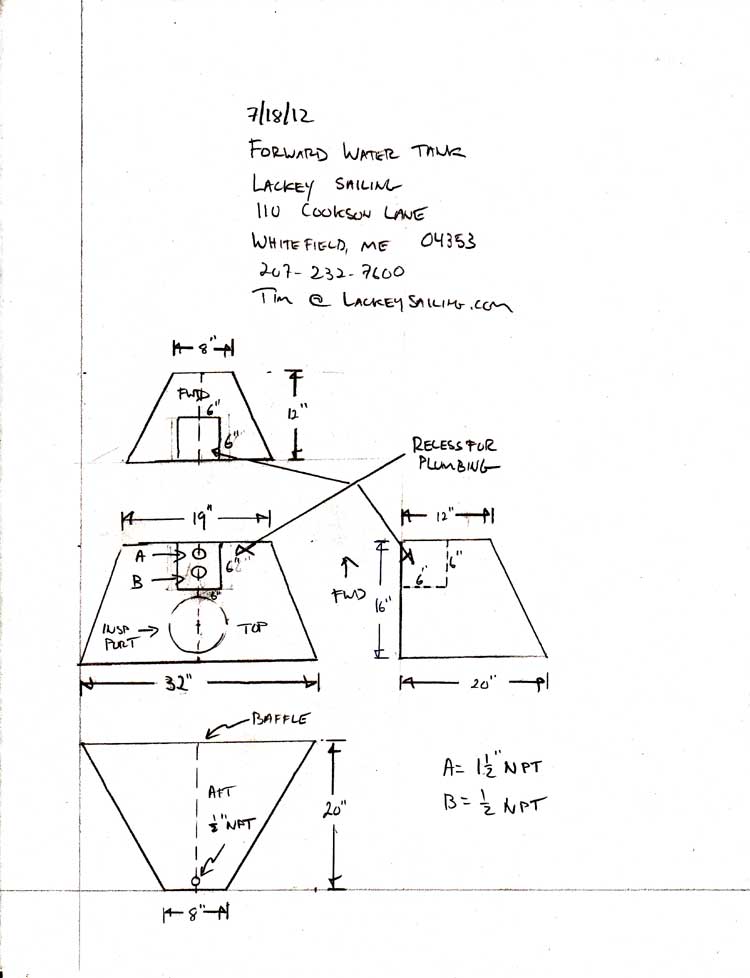 7/18/12
FORWARD WATER TANK
LACKEY SAILING
110 COOKSON LANE
WHITEFIELD, ME 04353
207-232-7600
TIM @ LACKEYSAILING.COM
8"
FWD
6"
6"
12"
RECESS FOR
PLUMBING
19"
A
B
6"
INSP
PORT
TOP
32"
12"
6"
6"
FWD
16"
20"
BAFFLE
AFT
1/2" NPT
20"
8"
A= 1 1/2" NPT
B= 1/2 NPT